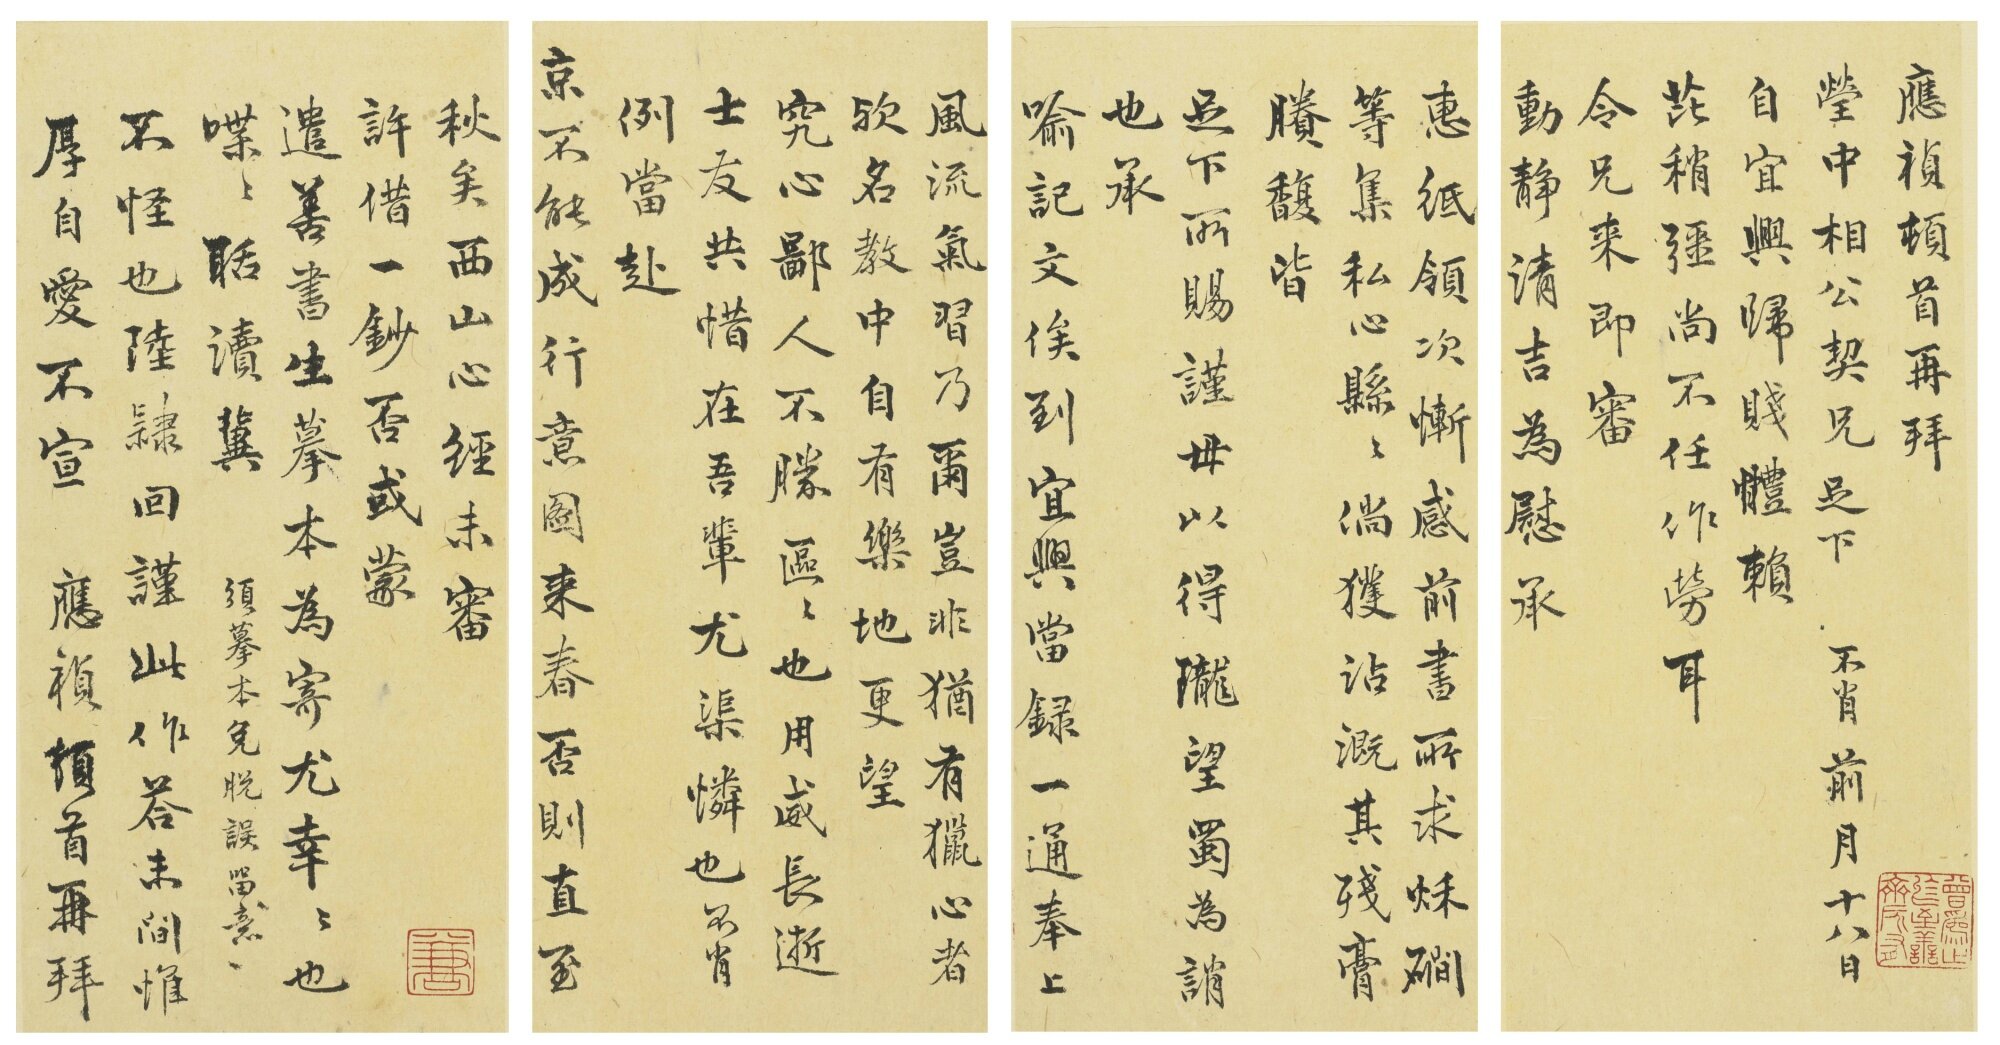 應禎頓首再拜
瑩中相公契兄足下 不肖前月十八日
自宜興歸賤體賴
芘稍彊尚不任作勞耳
令兄来即審
動靜清吉為慰承
惠紙領次慚感前書所求蘇磵
等集私心縣〻倘獲沾溉其殘膏
賸馥皆
足下所賜謹毋以得隴望蜀為誚
也承
喻記文俟到宜興當録一通奉上
風流氣習乃爾豈非猶有獵心者
歟名教中自有樂地更望
究心鄙人不勝區〻也用威長逝
士友共惜在吾輩尤渠憐也不肖
例當赴
京不能成行意圖来春否則直至
秋矣西山心經未審
許借一鈔否或蒙
遣善書生摹本為寄尤幸〻也
喋〻聒瀆冀 須摹本免脫誤留意〻
不怪也陸隸回謹此作荅未間惟
厚自愛不宣 應禎頓首再拜